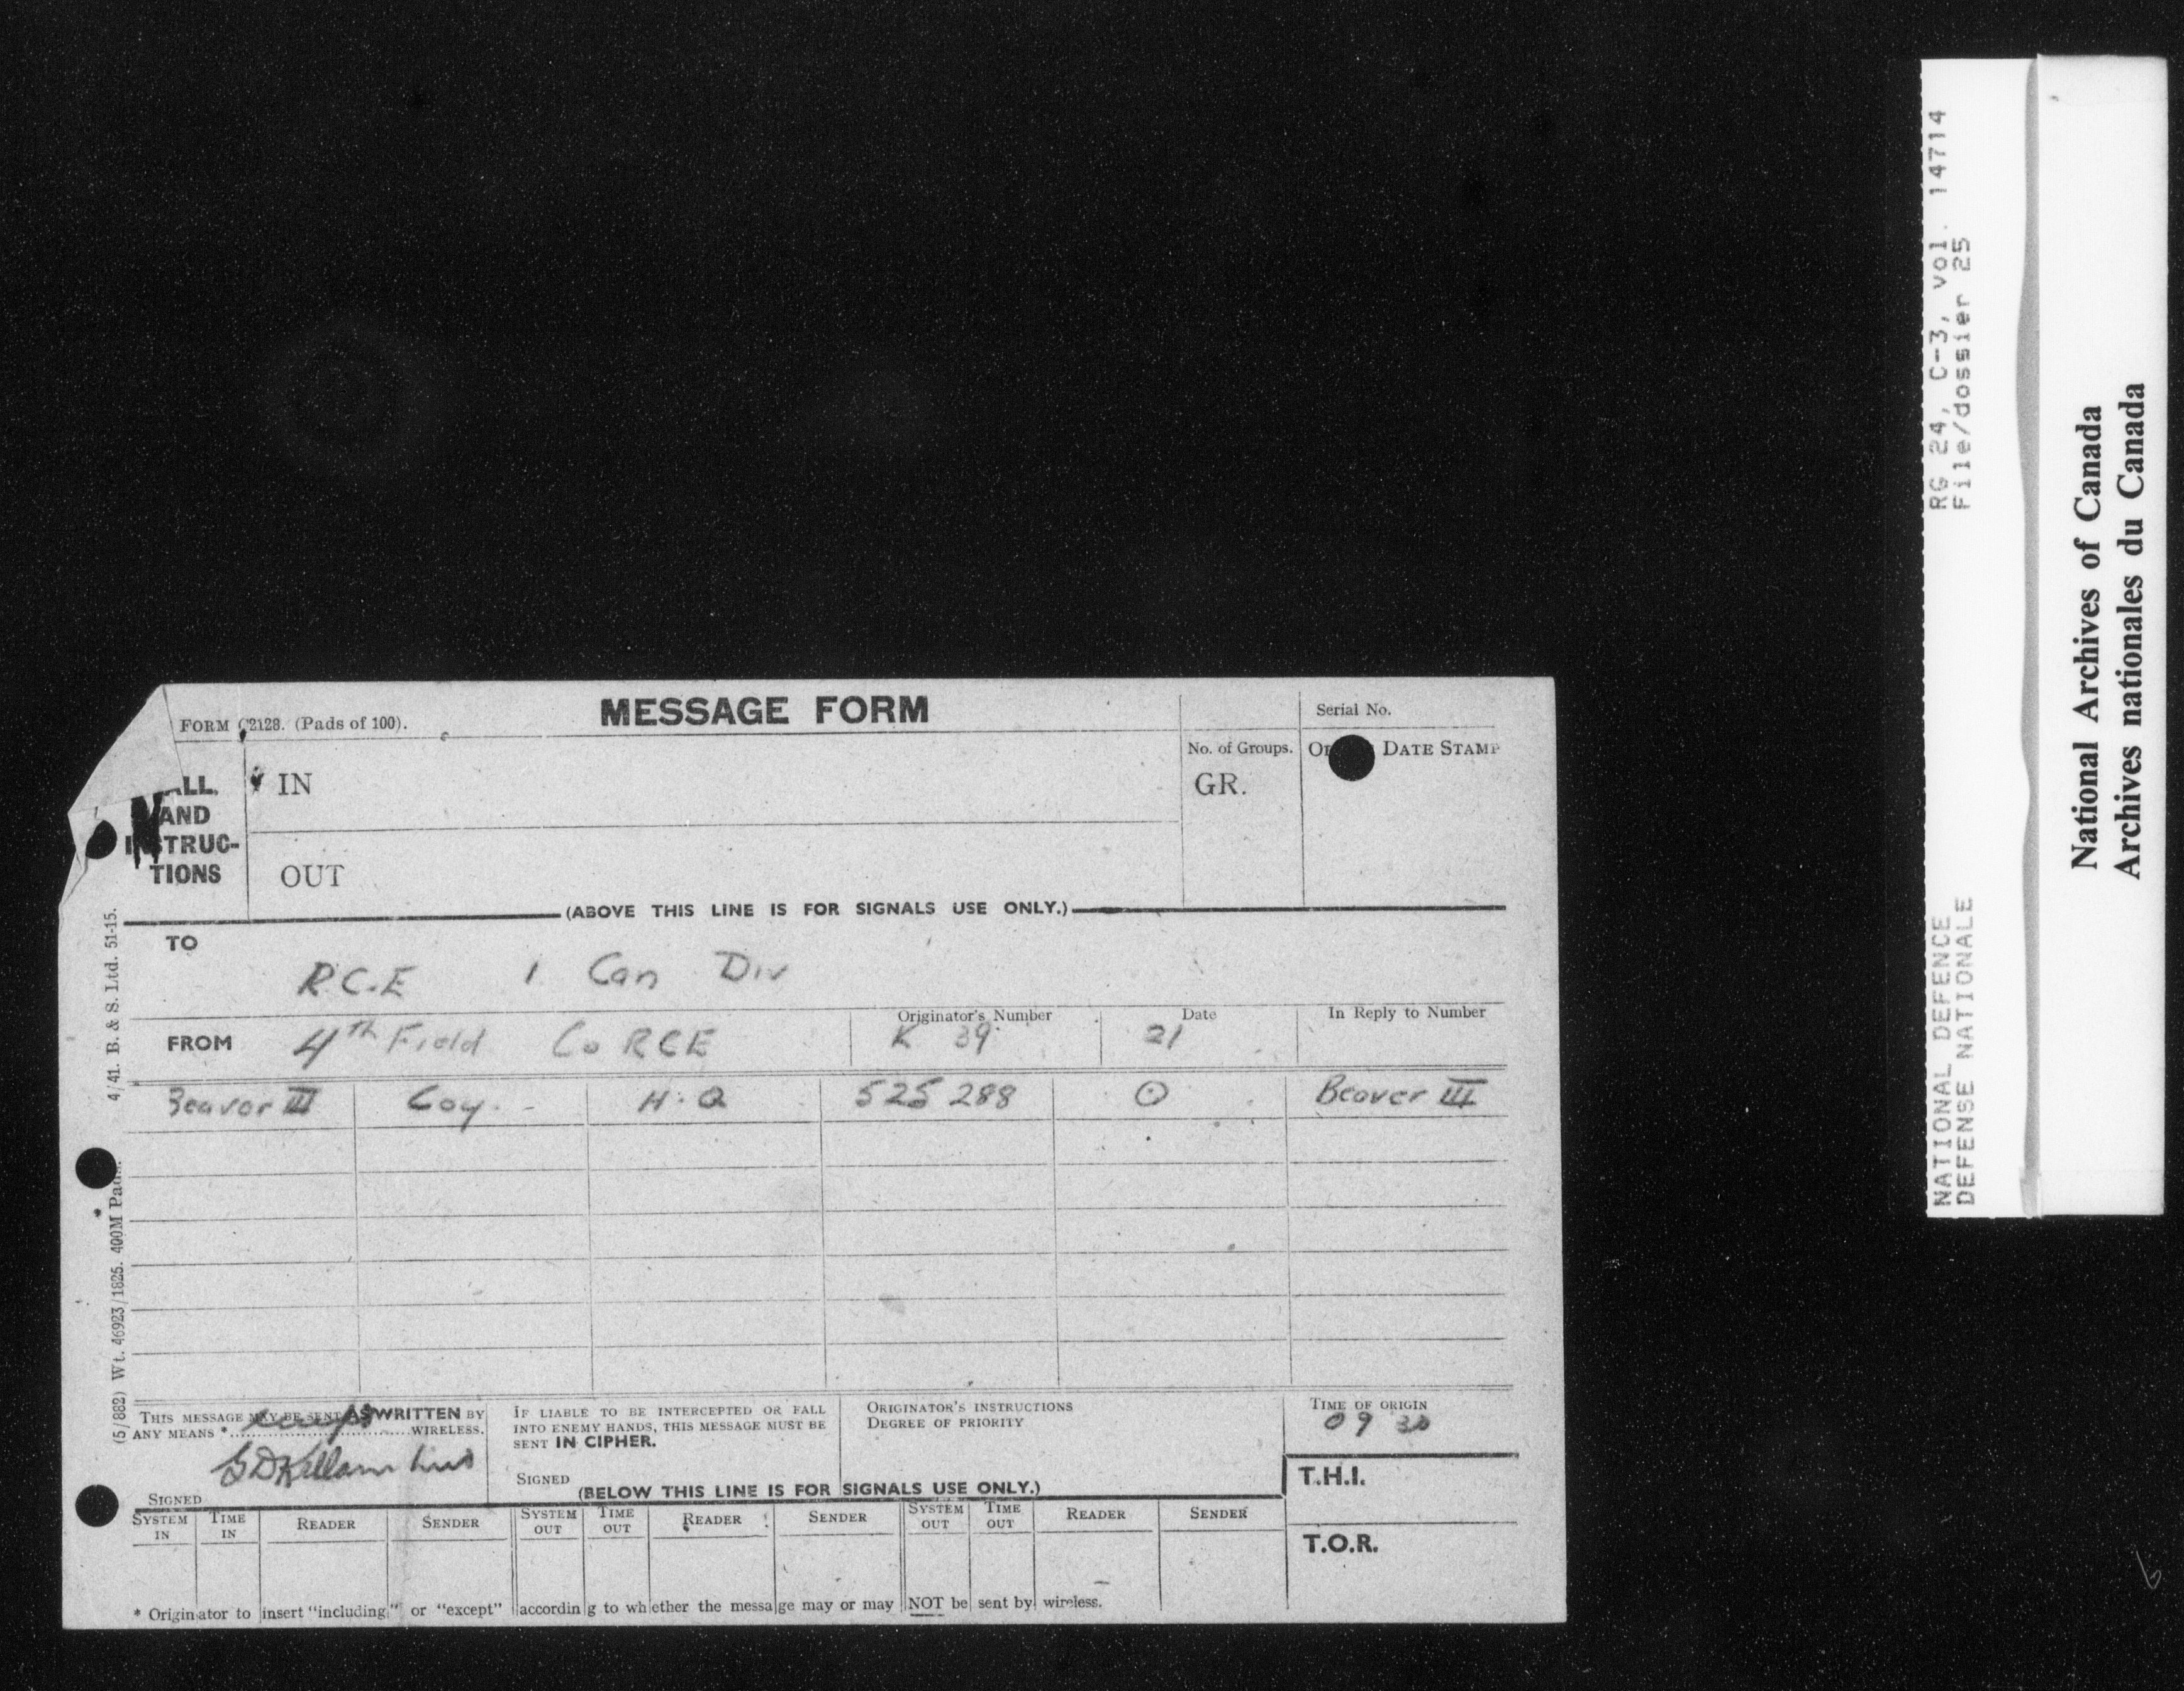 FORM C2128. (Pads of 100).
MESSAGE FORM
Serial No.
ALL,
AND
INSTRUC-
TIONS
IN
OUT
No. of Groups.
GR.
DATE STAMP
(ABOVE THIS LINE IS FOR SIGNALS USE ONLY.)
TO
R.C.E 1 Can Div
FROM
4th Field Co RCE
Originator's Number
K 39
Date
21
In Reply to Number
Beaver III Coy. H.Q 525 288 ⊙ Beaver III
THIS MESSAGE MAY BE SENT AS WRITTEN BY
ANY MEANS * WIRELESS.
SIGNED
IF LIABLE TO BE INTERCEPTED OR FALL
INTO ENEMY HANDS, THIS MESSAGE MUST BE
SENT IN CIPHER.
SIGNED
ORIGINATOR'S INSTRUCTIONS
DEGREE OF PRIORITY
TIME OF ORIGIN
09 30
T.H.I.
T.O.R.
(BELOW THIS LINE IS FOR SIGNALS USE ONLY.)
SYSTEM IN TIME IN READER SENDER SYSTEM OUT TIME OUT READER SENDER SYSTEM OUT TIME OUT READER SENDER
* Originator to insert "including" or "except" according to whether the message may or may NOT be sent by wireless.
(5/882) Wt. 46923/1825. 400M Pads. 4/41. B. & S. Ltd. 51-15.
RG 24, C-3, vol. 14714
File/dossier 25
NATIONAL DEFENCE
DEFENSE NATIONALE
National Archives of Canada
Archives nationales du Canada